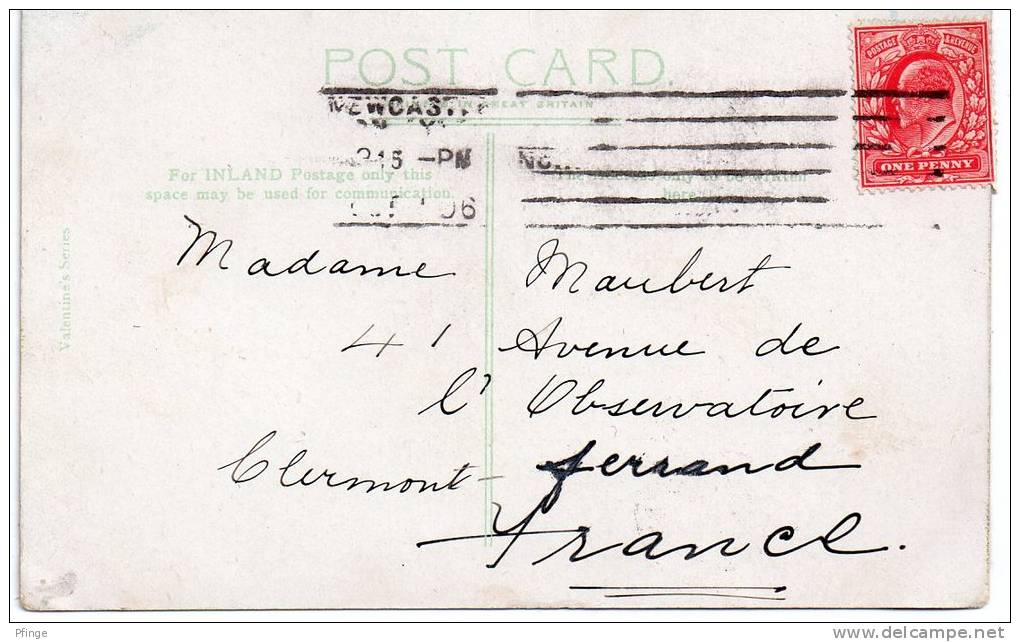 POST CARD.
POSTAGE & REVENUE
ONE PENNY
NEWCAST
215 -PM
06
IN GREAT BRITAIN
For INLAND Postage only this
space may be used for communication.
only to be written
here
Valentine's Series
Madame Maubert
41 Avenue de
l' Observatoire
Clermont-ferrand
France.
Pfinge
www.delcampe.net